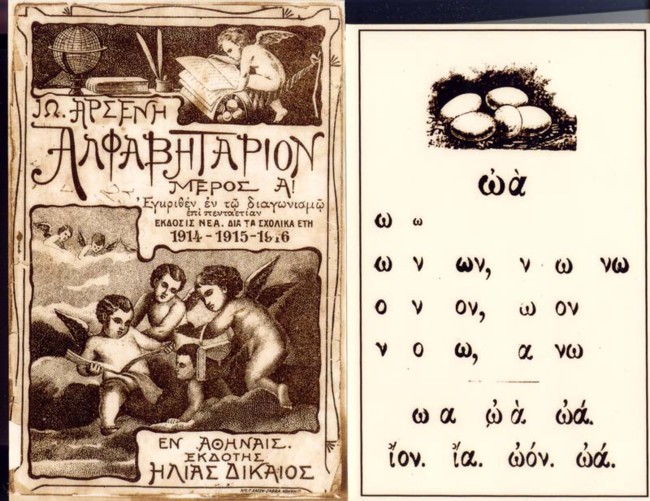 ΙΩ. ΑΡΣΕΝΗ
ΑΛΦΑΒΗΤΑΡΙΟΝ
ΜΕΡΟΣ Α!
Ἐγκριθὲν ἐν τῷ διαγωνισμῷ
ἐπὶ πενταετίαν
ΕΚΔΟΣΙΣ ΝΕΑ. ΔΙΑ ΤΑ ΣΧΟΛΙΚΑ ΕΤΗ
1914-1915-1916
ΕΝ ΑΘΗΝΑΙΣ.
ΕΚΔΟΤΗΣ
ΗΛΙΑΣ ΔΙΚΑΙΟΣ
ὠὰ
ω ω
ω ν ων, ν ω νω
ο ν ον, ω ον
ν ο ω, α νω
ω α ὠ ὰ ὠά.
ἴον. ἴα. ὠόν. ὠά.